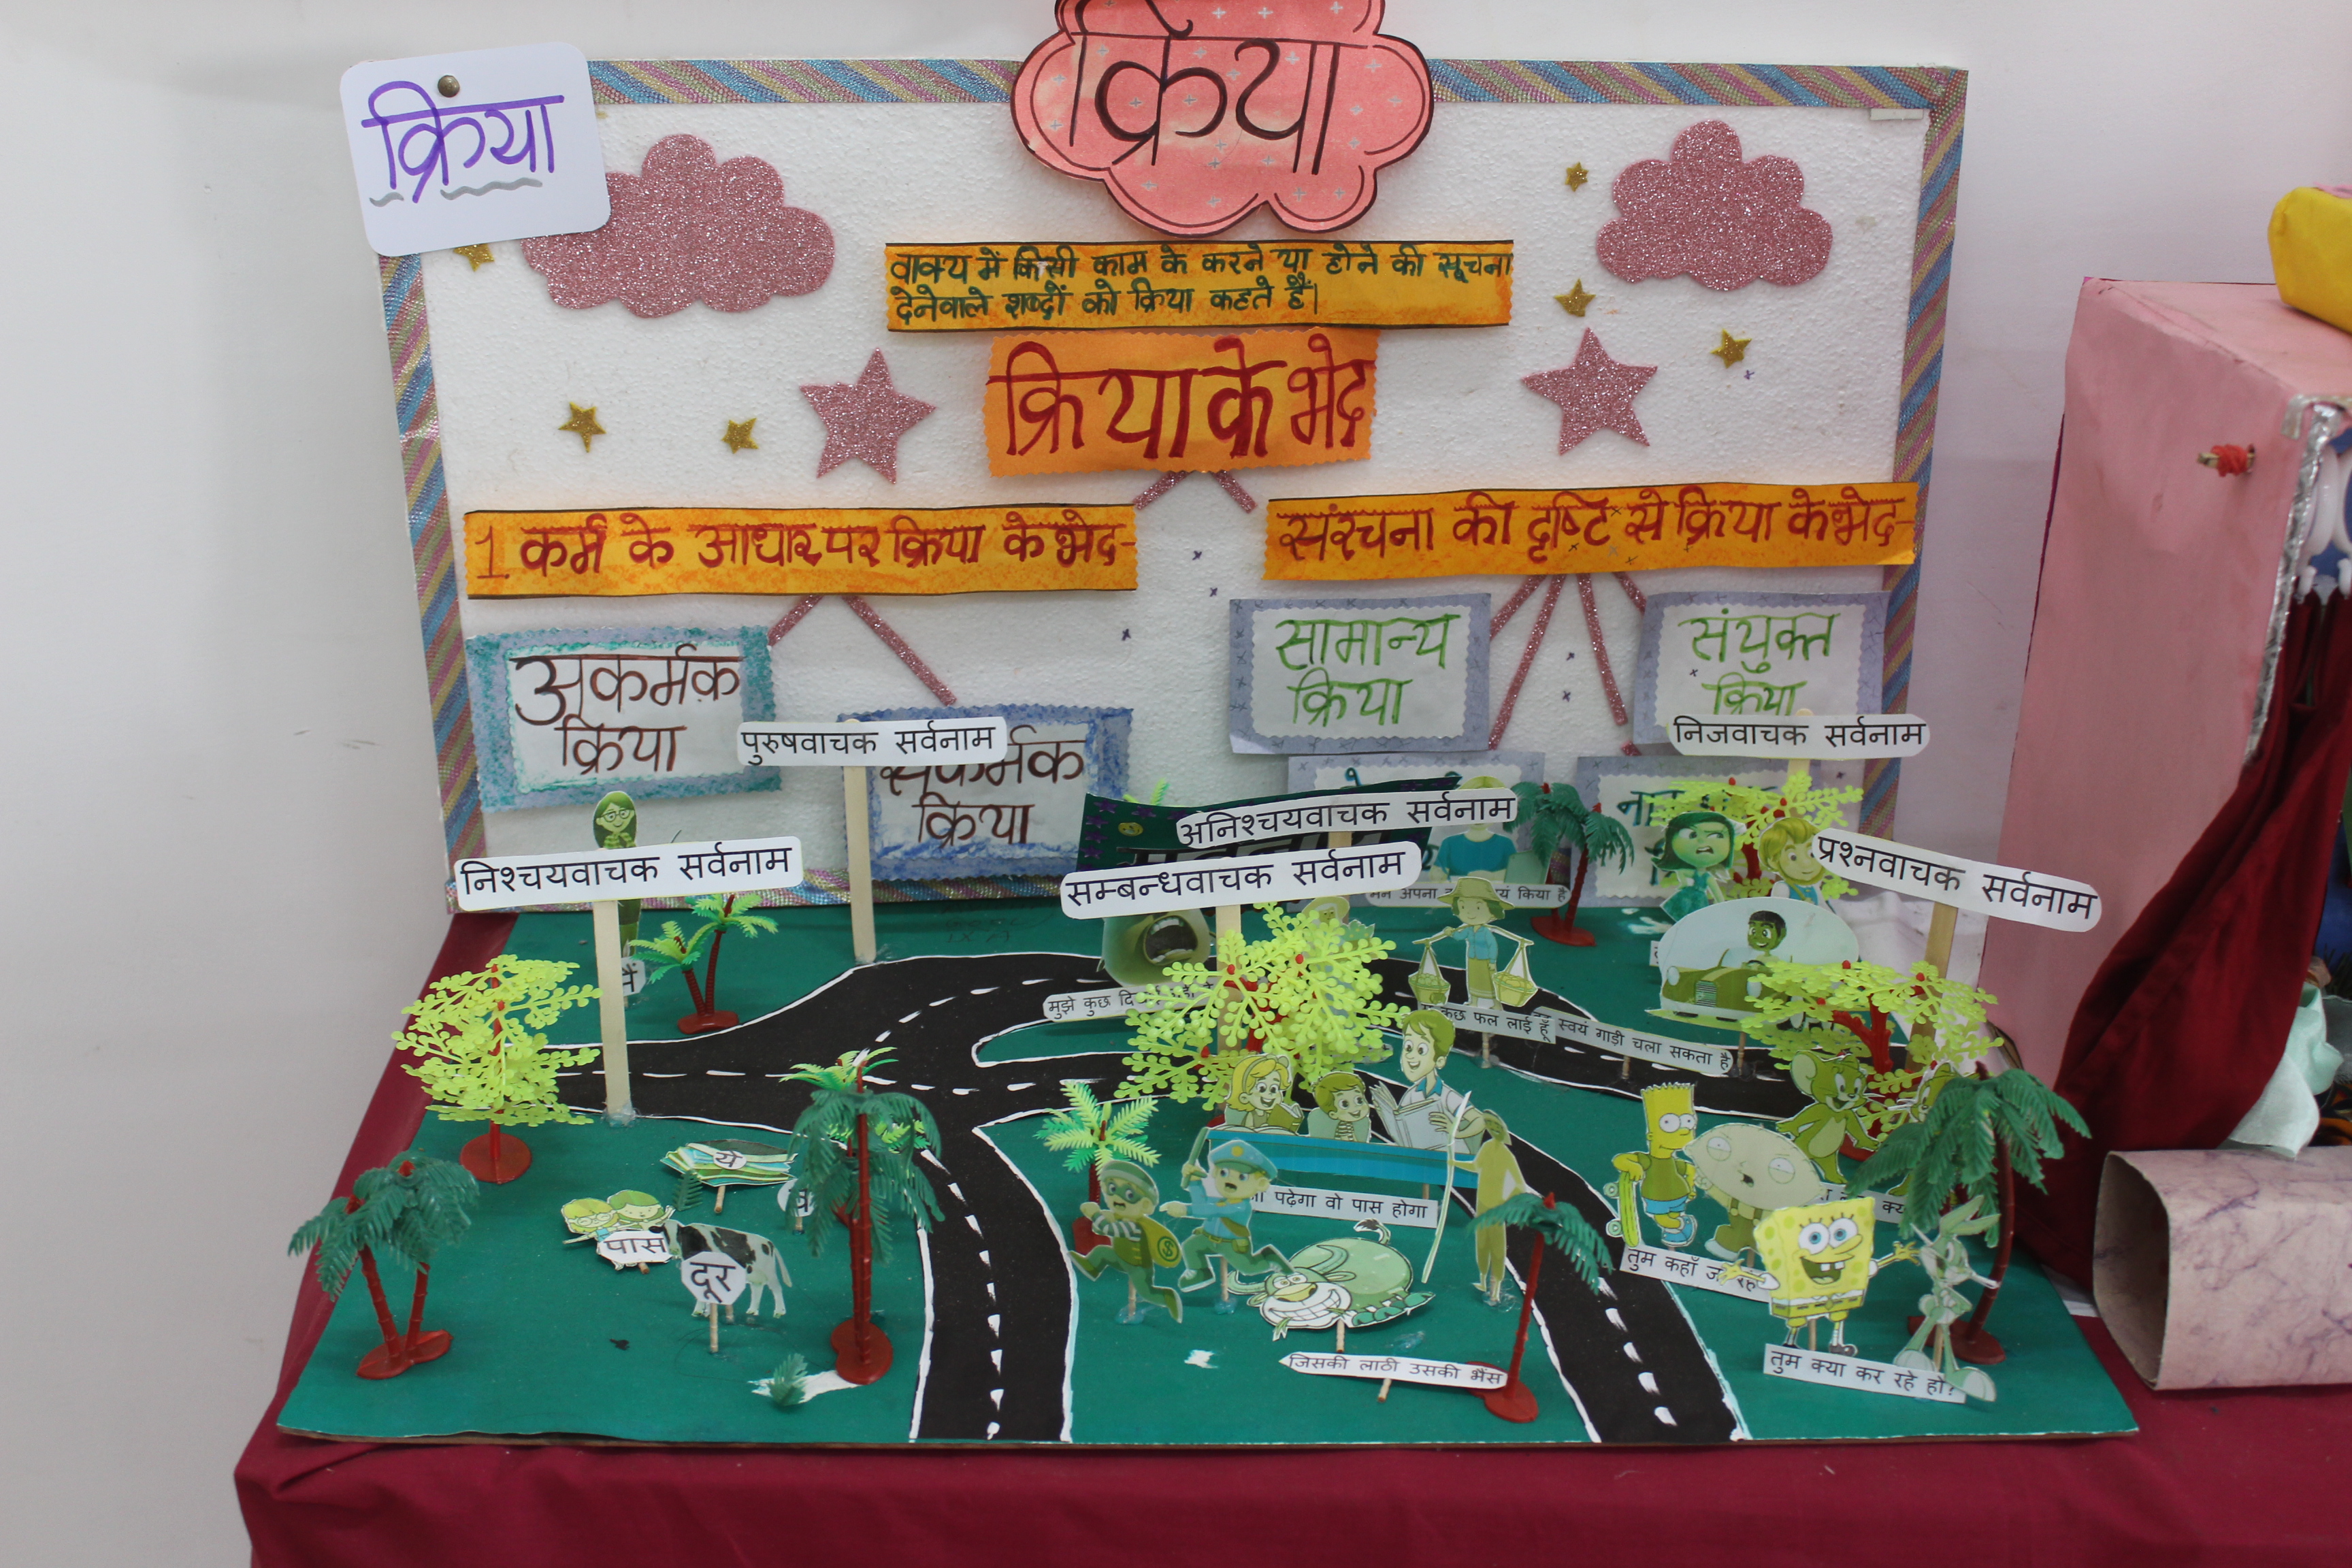 क्रिया
क्रिया
वाक्य में किसी काम के करने या होने की सूचना
देनेवाले शब्दों को क्रिया कहते हैं।
क्रिया के भेद
1 कर्म के आधार पर क्रिया के भेद-
संरचना की दृष्टि से क्रिया के भेद-
अकर्मक
क्रिया
सकर्मक
क्रिया
सामान्य
क्रिया
संयुक्त
क्रिया
पुरुषवाचक सर्वनाम
निजवाचक सर्वनाम
निश्चयवाचक सर्वनाम
अनिश्चयवाचक सर्वनाम
सम्बन्धवाचक सर्वनाम
प्रश्नवाचक सर्वनाम
अपना
किया है
मुझे कुछ
कुछ फल लाई हूँ
स्वयं गाड़ी चला सकता है
ये
पास
दूर
पढ़ेगा वो पास होगा
तुम कहाँ
जिसकी लाठी उसकी भैंस
तुम क्या कर रहे हो?